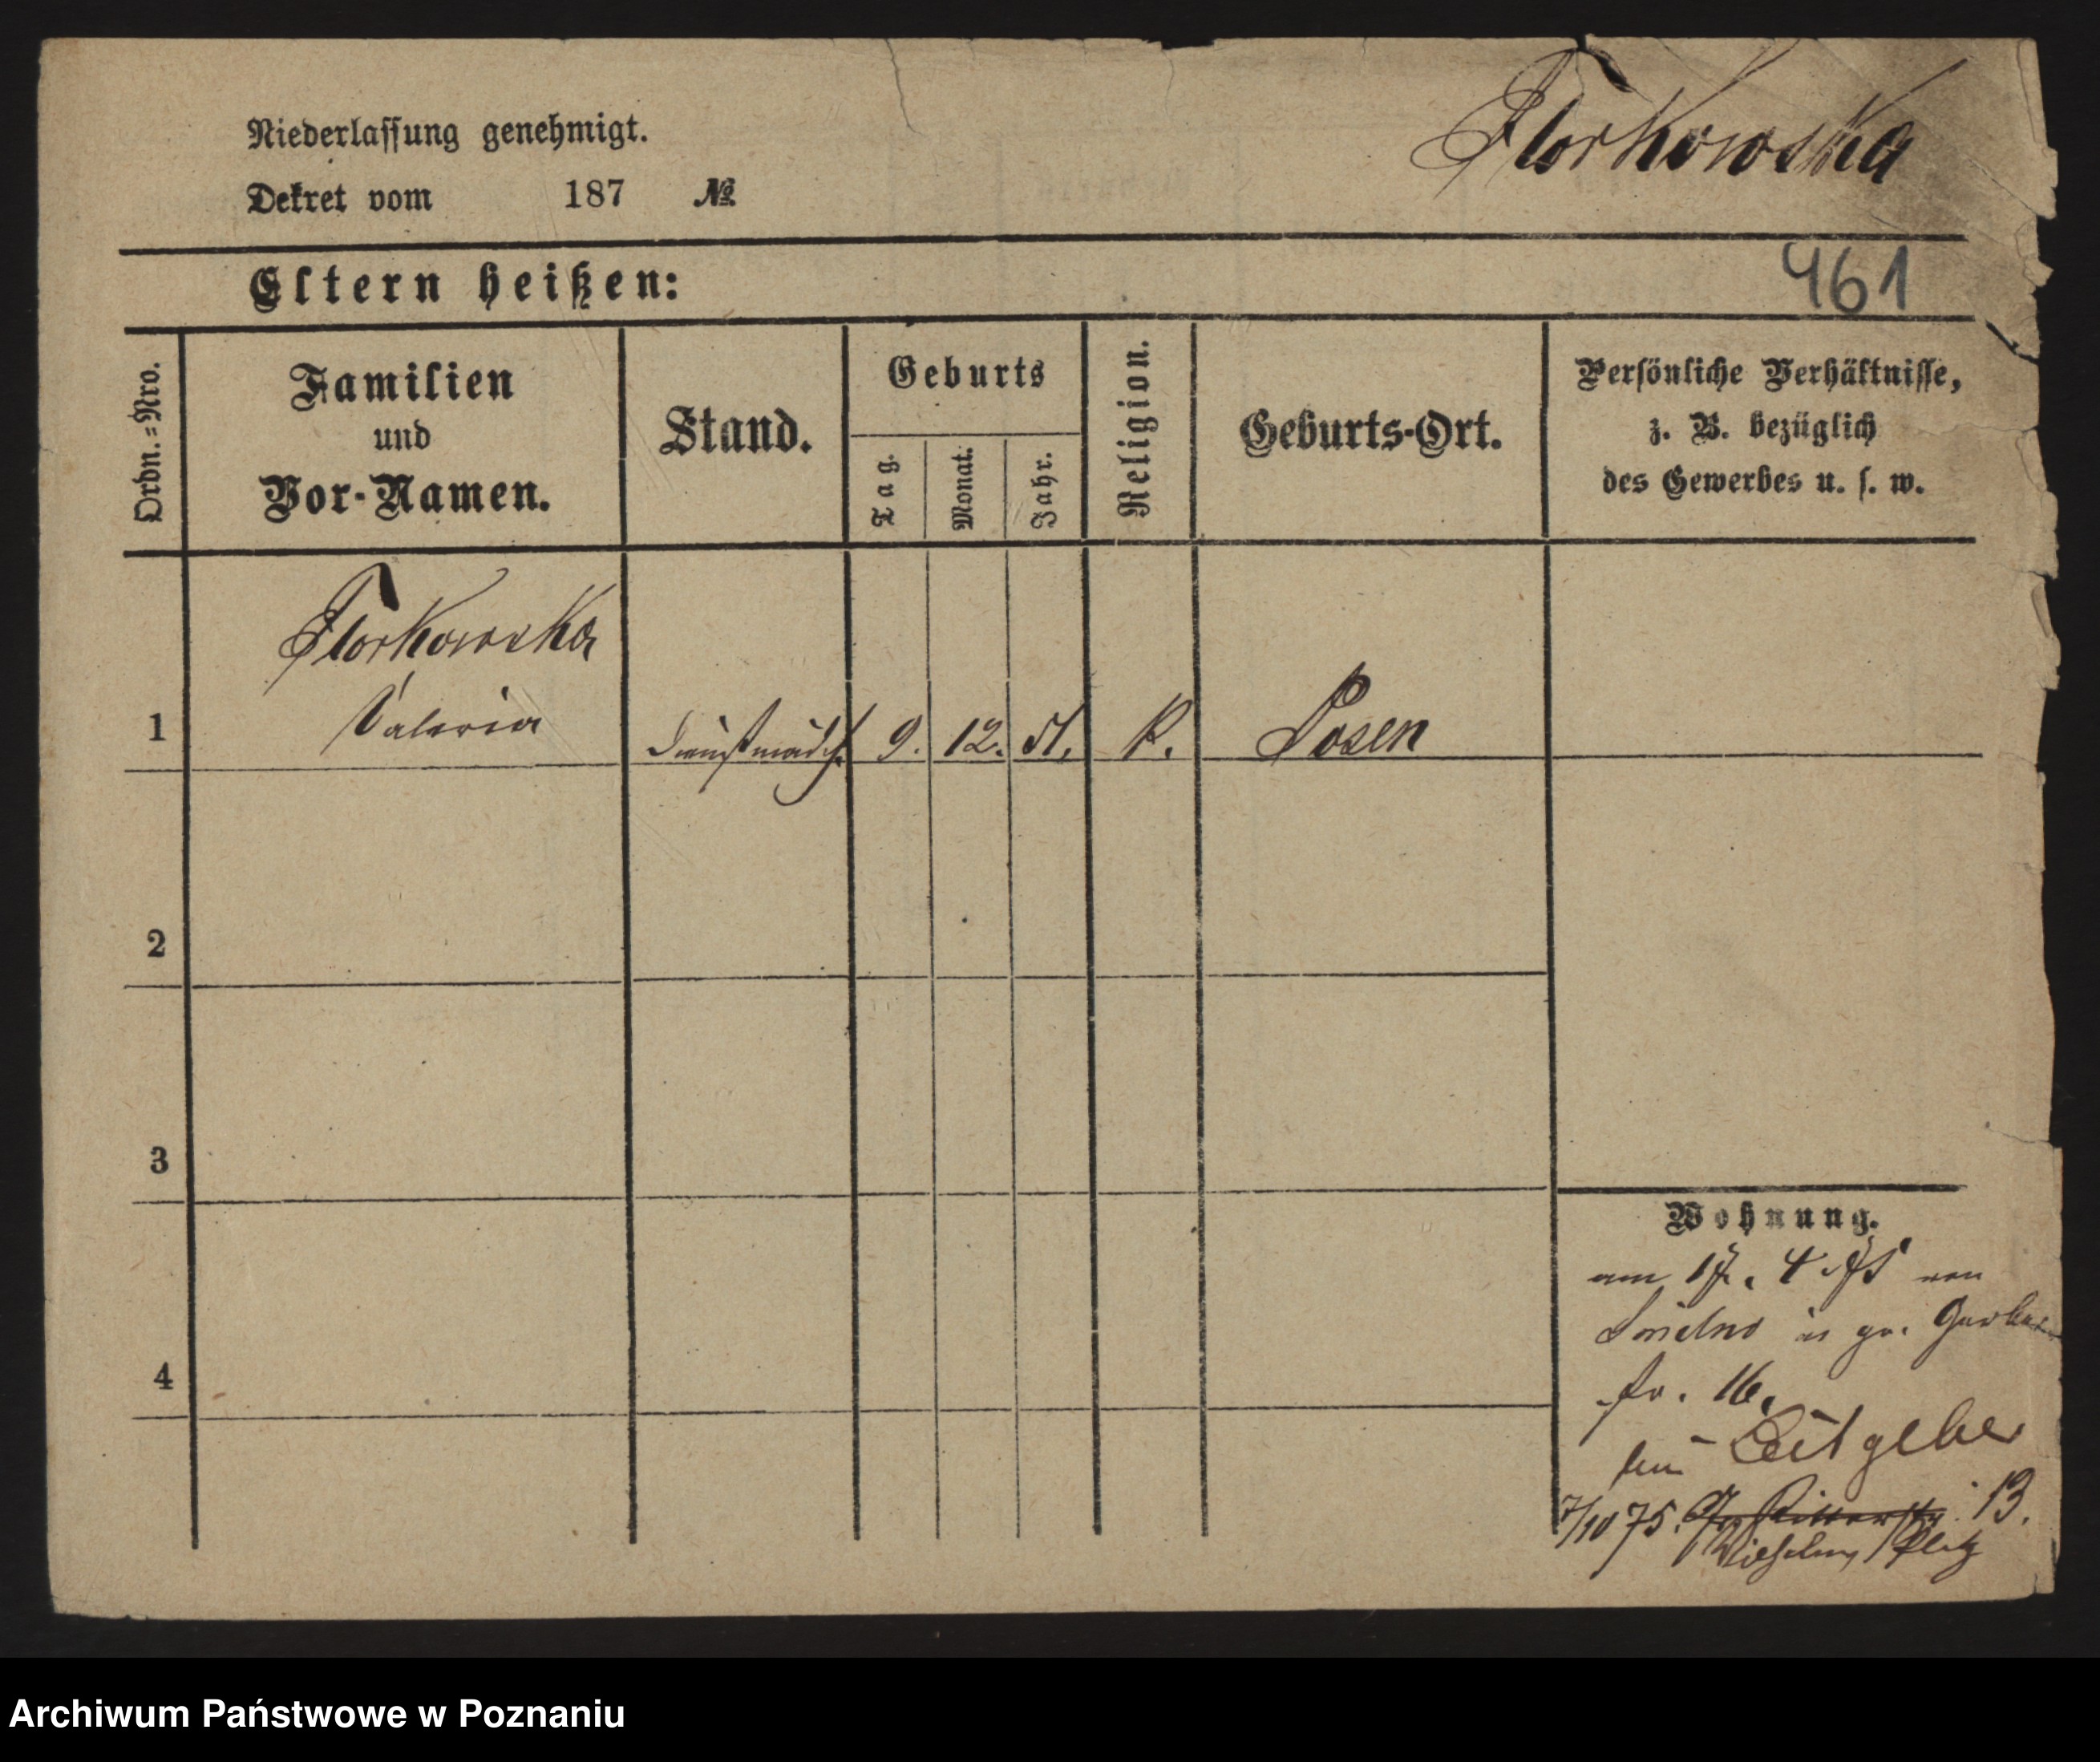 Florkowska
Niederlassung genehmigt.
Dekret vom 187 №
461
Eltern heißen:
Ordn.=Nro.
Familien
und
Vor-Namen.
Stand.
Geburts
Tag.
Monat.
Jahr.
Religion.
Geburts-Ort.
Persönliche Verhältnisse,
z. B. bezüglich
des Gewerbes u. s. w.
Florkowska
1 Valeria Dienstmädch. 9. 12. 51. K. Posen
2
3
4
Wohnung.
am 17. 4 von
in gr. Gerber
str. 16.
bei Leitgeber
7/10 75. Gr. Ritterstr. 13.
Wilhelms Platz
Archiwum Państwowe w Poznaniu